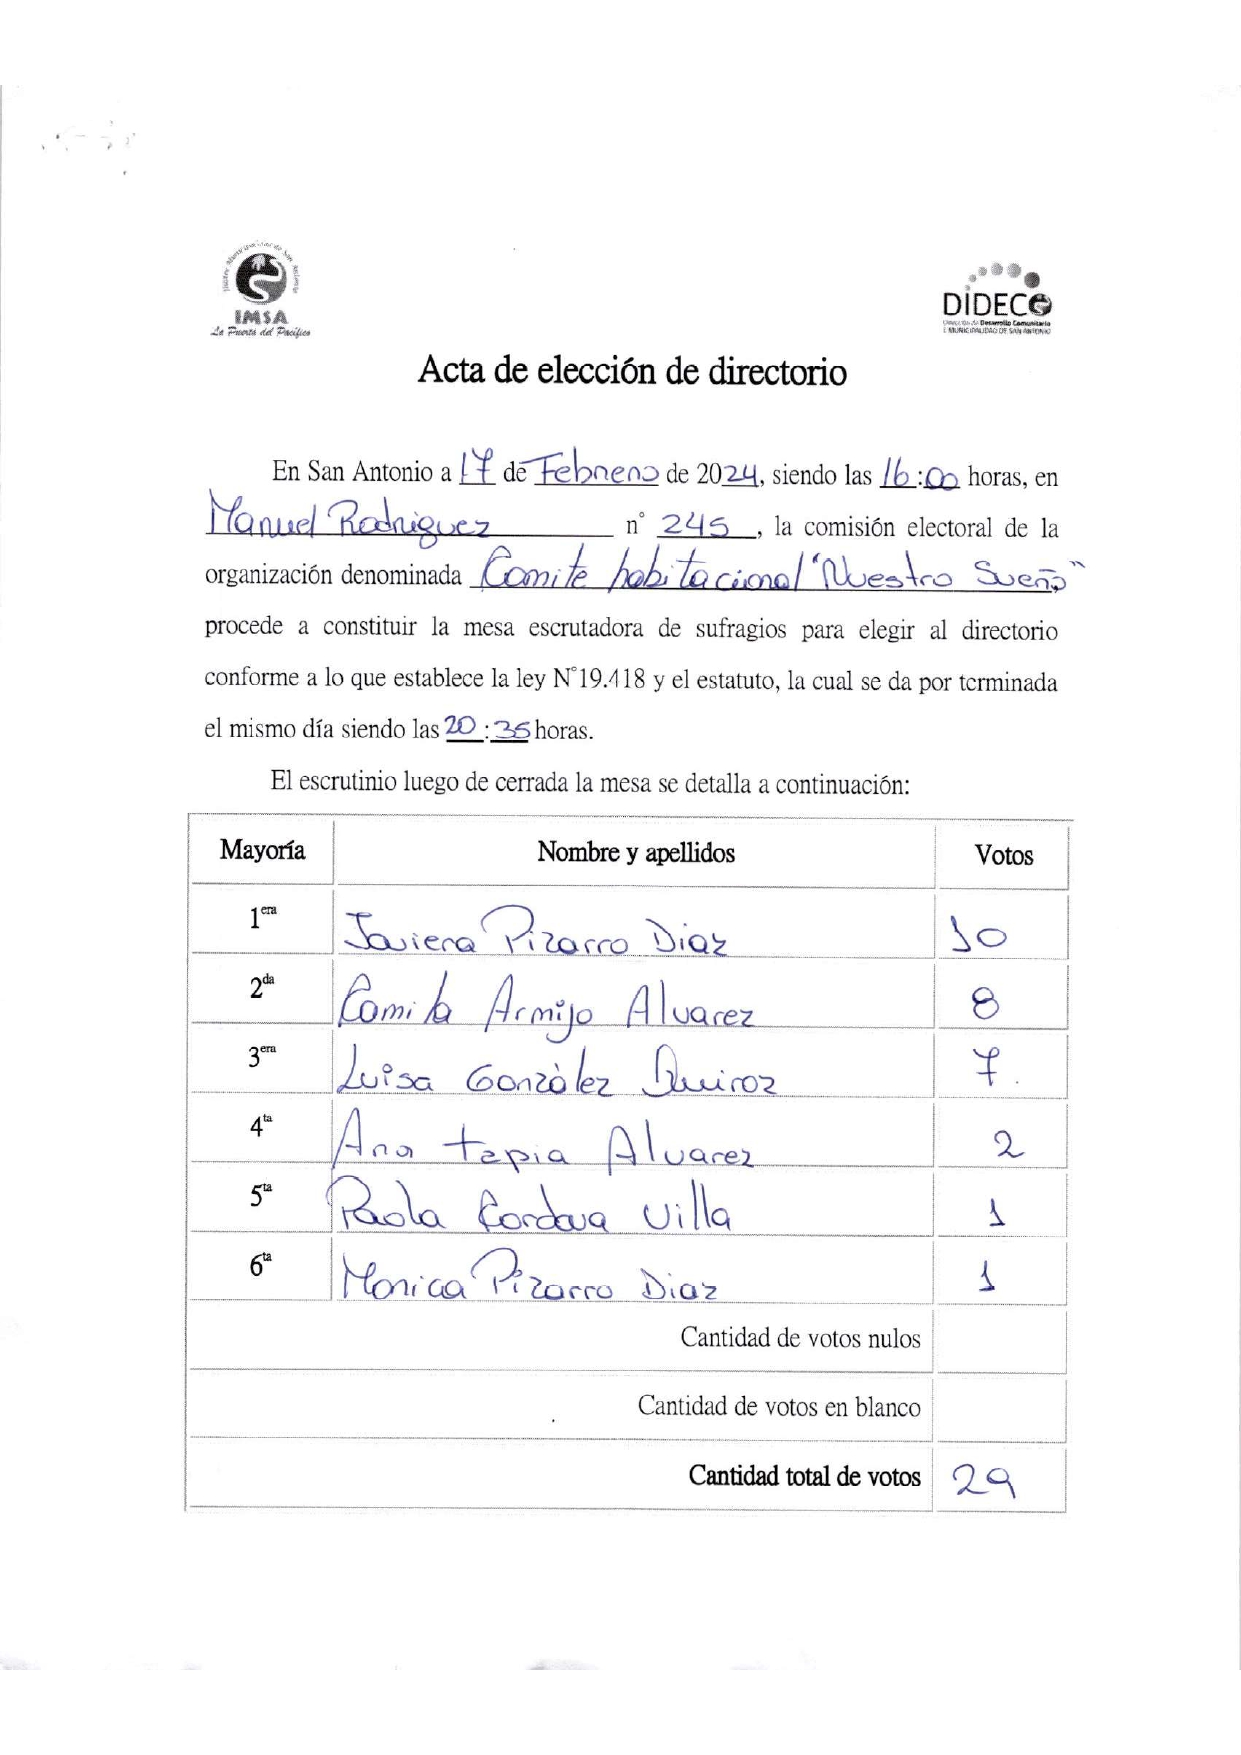 IMSA
La Puerta del Pacífico
DIDECO
Desarrollo Comunitario
I. MUNICIPALIDAD DE SAN ANTONIO
Acta de elección de directorio
En San Antonio a 17 de Febrero de 2024, siendo las 16:00 horas, en
Manuel Rodriguez n° 245, la comisión electoral de la
organización denominada Comite habitacional "Nuestro Sueño"
procede a constituir la mesa escrutadora de sufragios para elegir al directorio
conforme a lo que establece la ley N°19.418 y el estatuto, la cual se da por terminada
el mismo día siendo las 20:35 horas.
El escrutinio luego de cerrada la mesa se detalla a continuación:
Mayoría Nombre y apellidos Votos
1era Javiera Pizarro Diaz 10
2da Camila Armijo Alvarez 8
3era Luisa Gonzàlez Quiroz 7
4ta Ana tapia Alvarez 2
5ta Paola Cordova Villa 1
6ta Monica Pizarro Diaz 1
Cantidad de votos nulos
Cantidad de votos en blanco
Cantidad total de votos 29